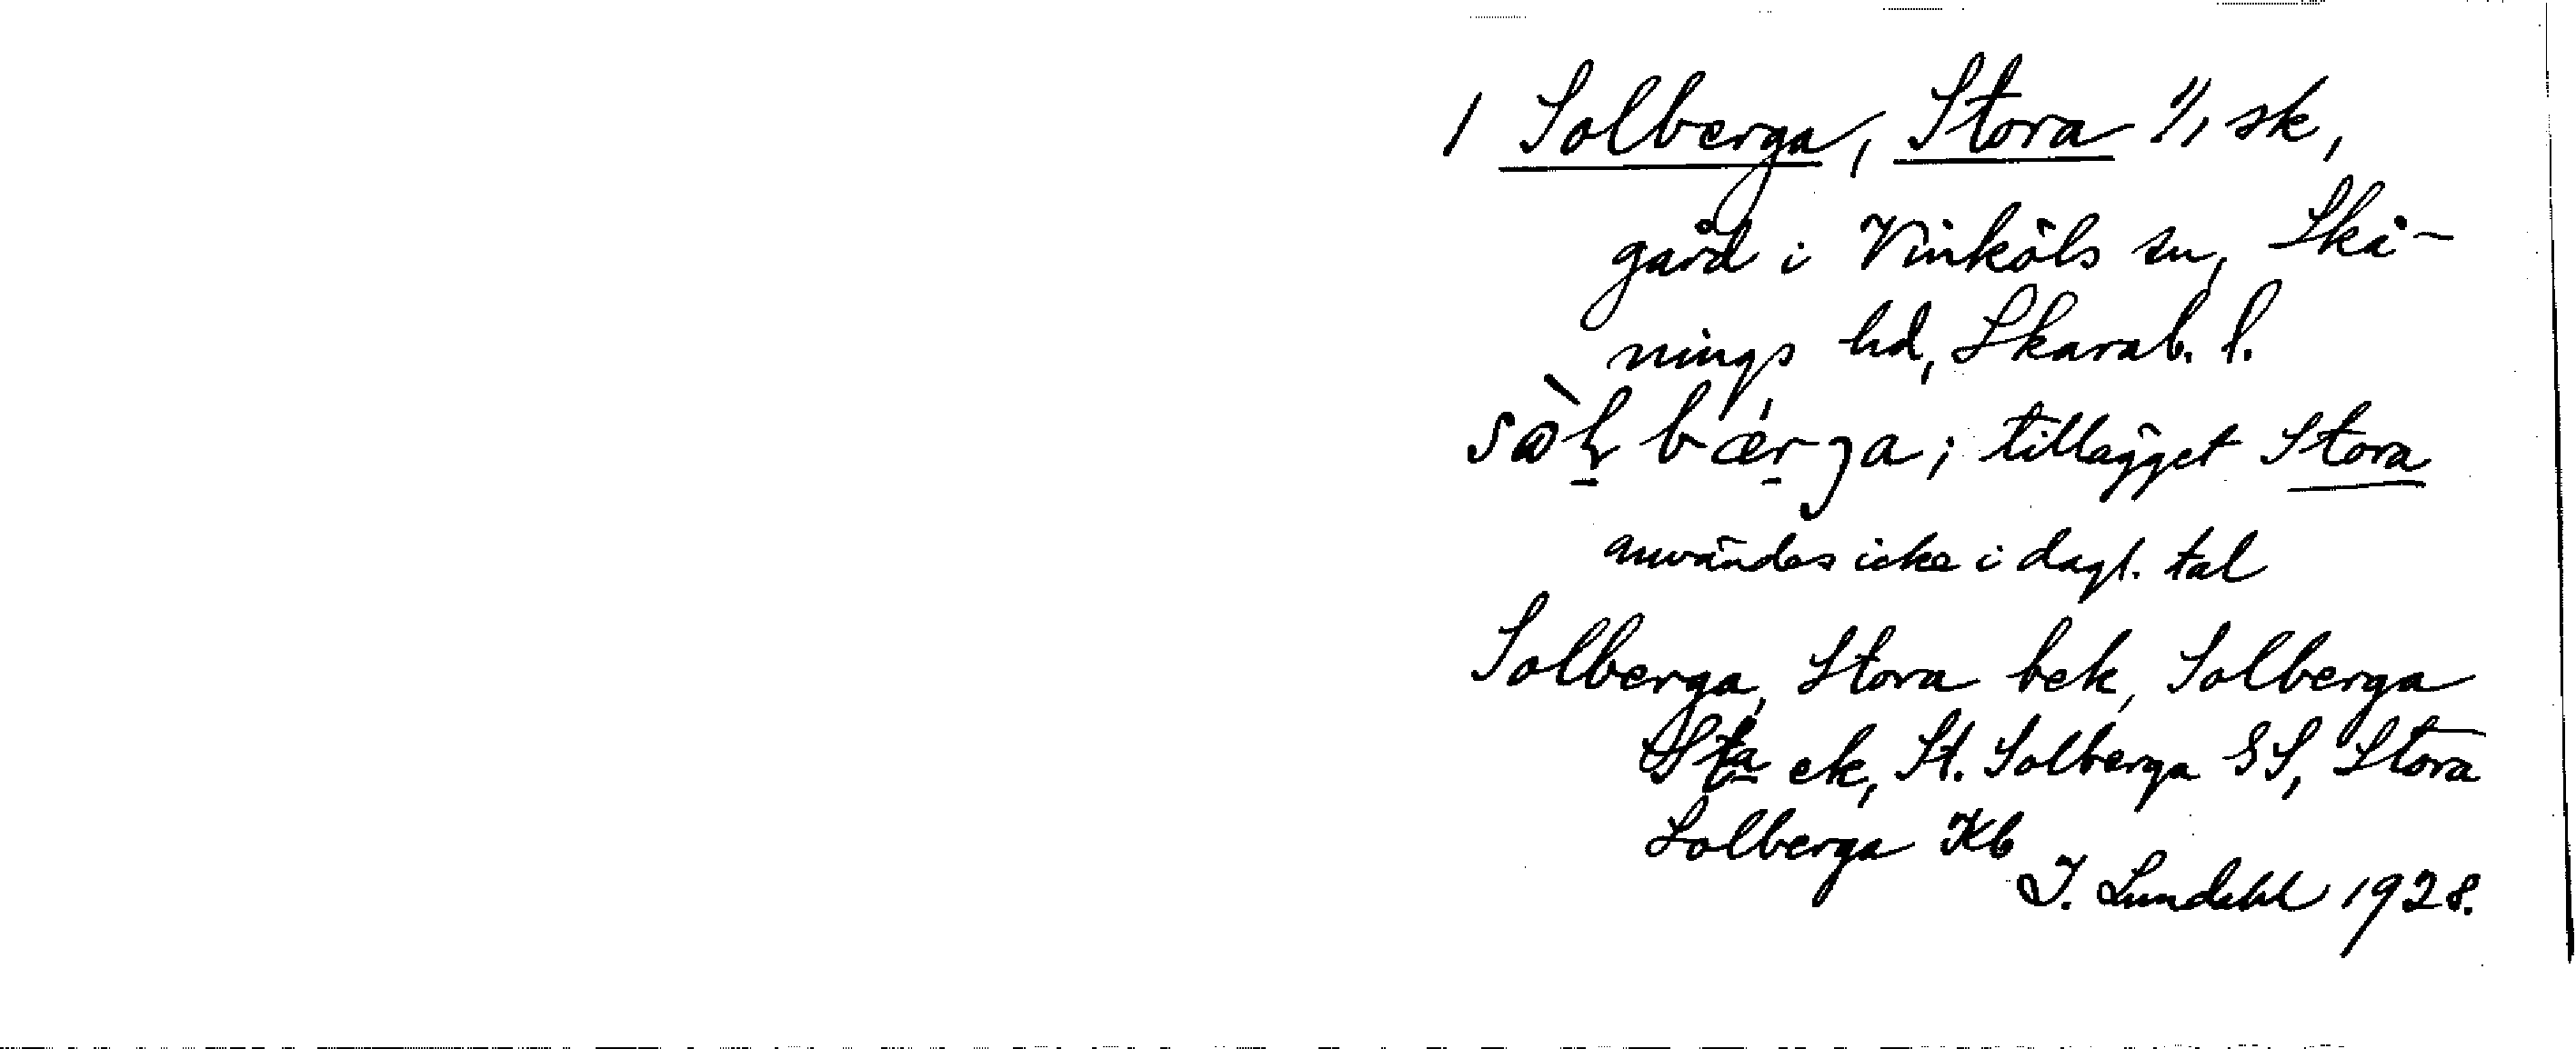 1 Solberga, Stora 1/1 sk,
gård i Vinköls sn, Skå-
nings hd, Skarab. l.
sòl bærja; tillägget Stora
användes icke i dagl. tal
Solberga, Stora bek, Solberga
Sta ek, St. Solberga GS, Stora
Solberga Kb
I. Lundahl 1928.